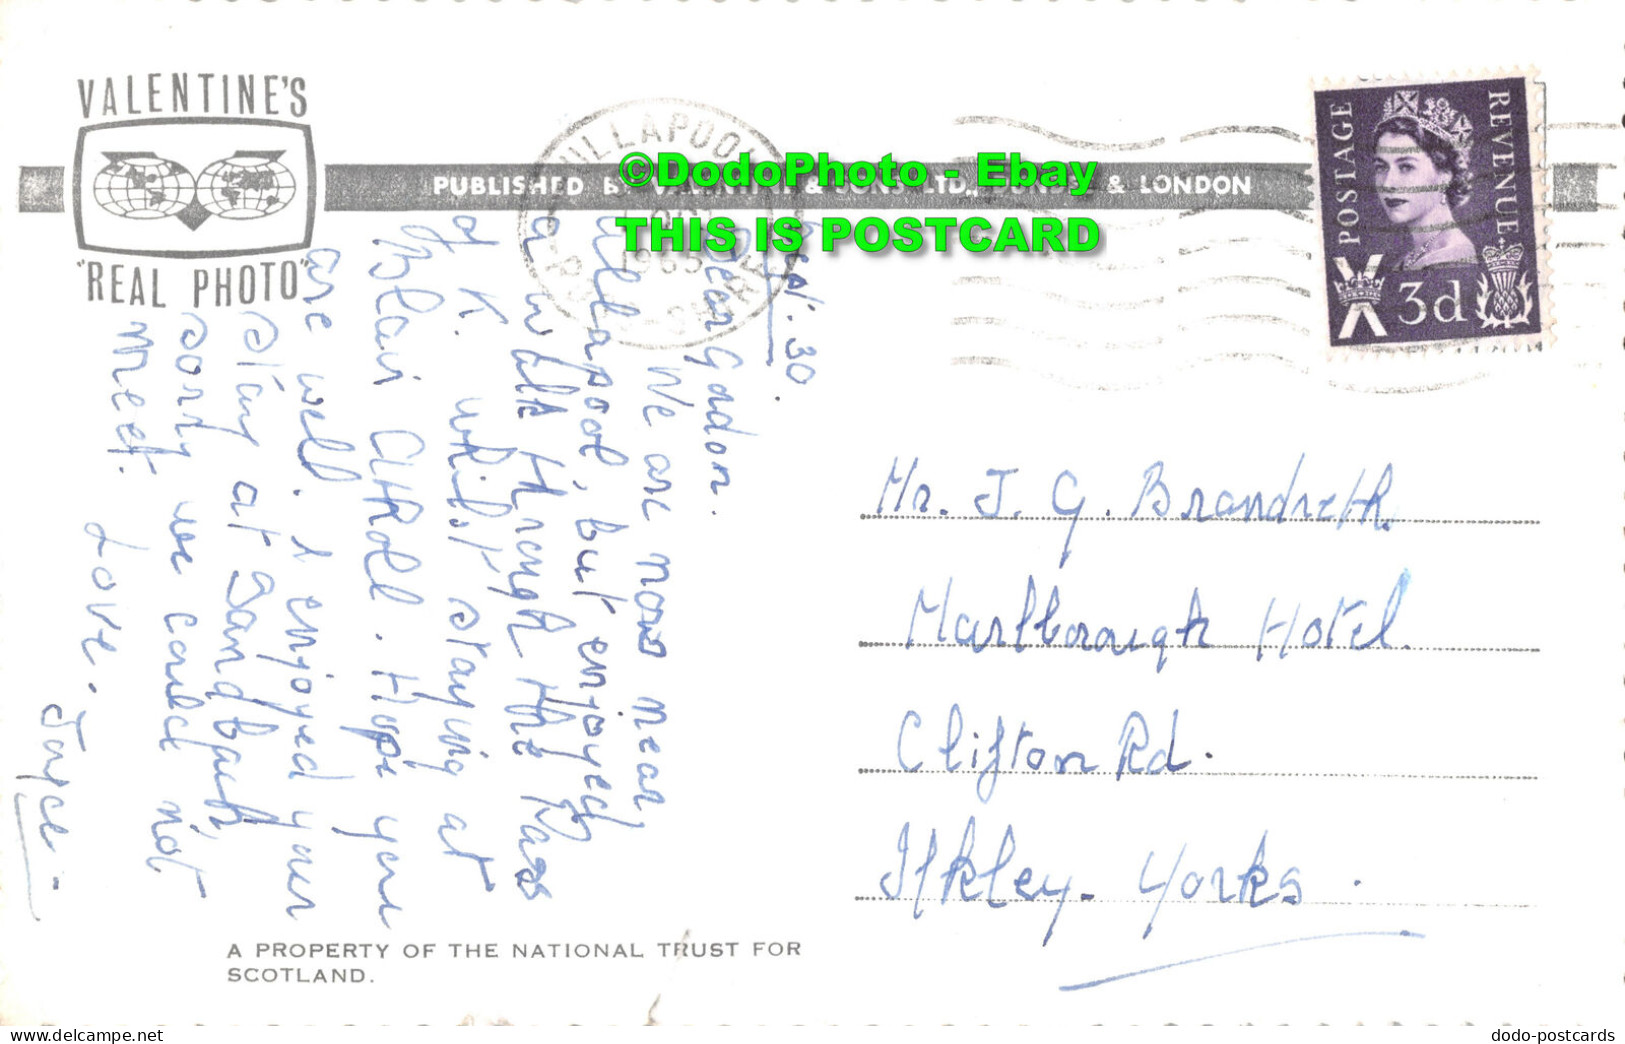 VALENTINE'S
"REAL PHOTO"
PUBLISHED BY & LTD., & LONDON
©DodoPhoto - Ebay
THIS IS POSTCARD
ULLAPOOL
1965
POSTAGE
REVENUE
3d
Wed. 30.
Dear Gordon.
We are now near
Ullapool, but enjoyed
a walk through the Pass
of K. whilst staying at
Blair Atholl. Hope you
are well. I enjoyed your
stay at Sandbach,
sorry we could not
meet.
Love.
Joyce.
Mr. J. G. Brandreth.
Marlborough Hotel.
Clifton Rd.
Ilkley - Yorks.
A PROPERTY OF THE NATIONAL TRUST FOR
SCOTLAND.
dodo-postcards